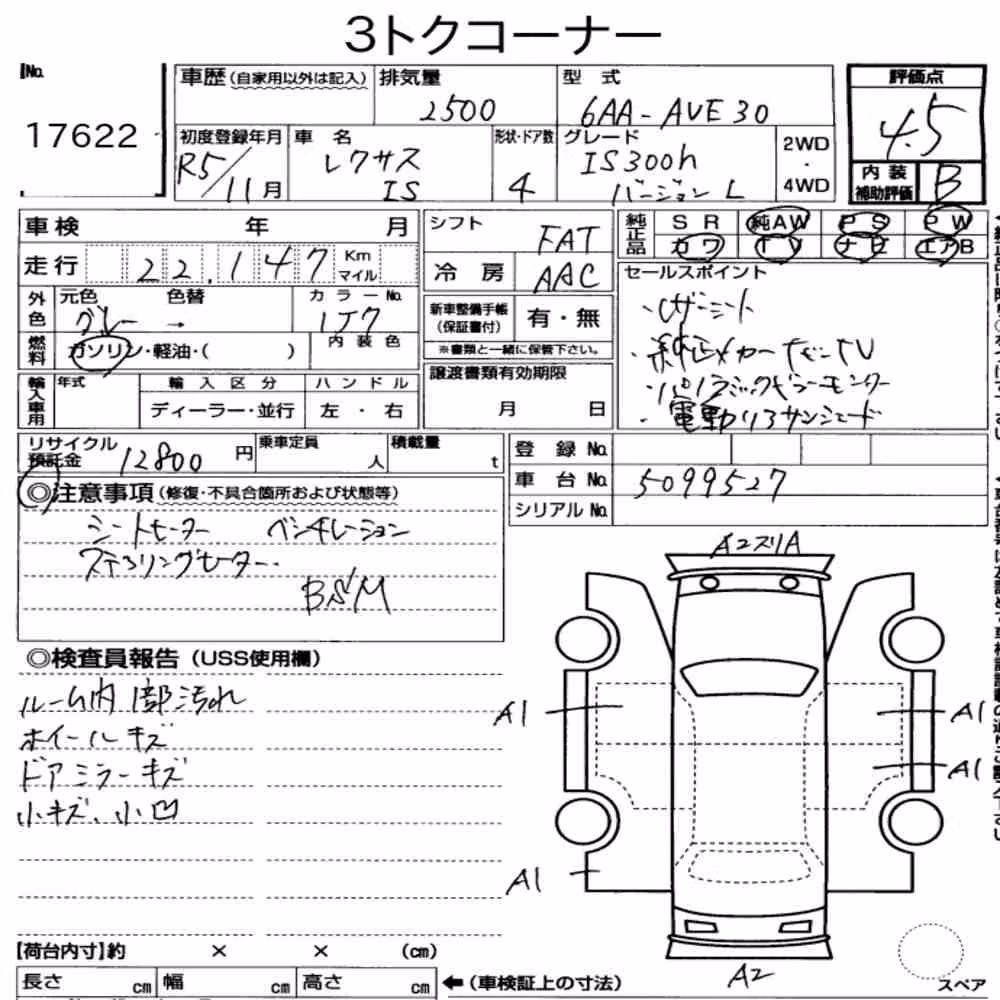 3トクコーナー
No.
17622
車歴(自家用以外は記入)
排気量
2500
型式
6AA-AVE30
評価点
4.5
初度登録年月
R5/11月
車名
レクサス
IS
形状・ドア数
4
グレード
IS300h
バージョンL
2WD
・
4WD
内装
補助評価
B
車検 年 月
走行 22,147 Km
マイル
外色
元色 色替
グレー →
カラーNo.
1J7
燃料
ガソリン・軽油・( )
内装色
輸入車用
年式
輸入区分
ディーラー・並行
ハンドル
左・右
シフト
FAT
冷房
AAC
新車整備手帳
(保証書付)
有・無
※書類と一緒に保管下さい。
譲渡書類有効期限
月 日
純正品
SR 純AW PS PW
カワ TV ナビ エアB
セールスポイント
・レザーシート
・純正メーカーナビTV
・パノラミックビューモニター
・電動リアサンシェード
リサイクル
預託金
12800円
乗車定員
人
積載量
t
登録No.
車台No.
5099527
シリアルNo.
◎注意事項(修復・不具合箇所および状態等)
シートヒーター ベンチレーション
ステアリングヒーター
BSM
◎検査員報告(USS使用欄)
ルーム内部汚れ
ホイールキズ
ドアミラーキズ
小キズ、小凹
A2スリA
A1
A1
A1
A1
A2
【荷台内寸】約 × × (cm)
長さ cm
幅 cm
高さ cm
←(車検証上の寸法)
スペア